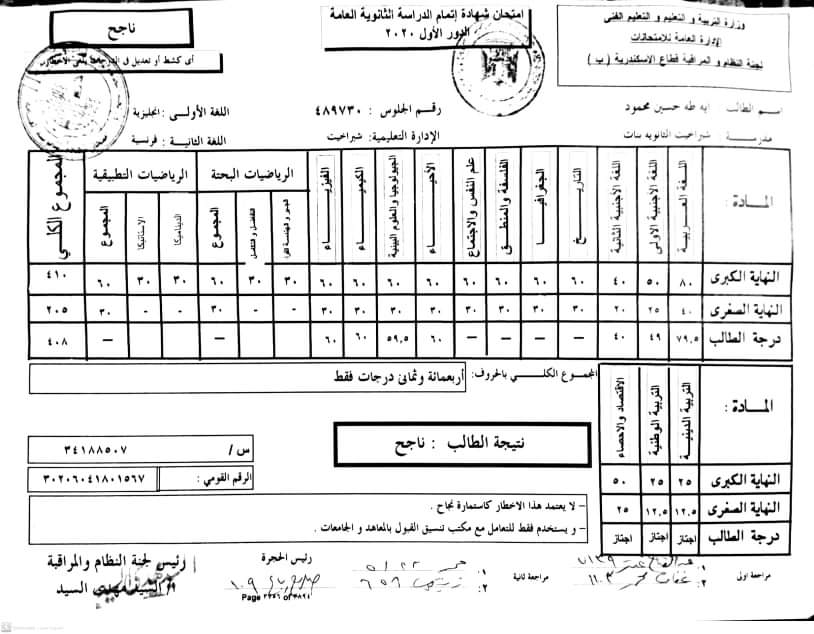 وزارة التربية و التعليم و التعليم الفنى
الإدارة العامة للامتحانات
لجنة النظام و المراقبة قطاع الاسكندرية ( ب )
امتحان شهادة إتمام الدراسة الثانوية العامة
الدور الأول ٢٠٢٠
ناجح
أى كشط أو تعديل فى الدرجات يلغى الاخطار
اسم الطالب : ايه طه حسين محمود
رقم الجلوس : ٤٨٩٧٣٠
اللغة الأولى : انجليزية
مدرسة : شبراخيت الثانويه بنات
الإدارة التعليمية: شبراخيت
اللغة الثانية : فرنسية
المادة : اللغة العربية اللغة الأجنبية الاولى اللغة الأجنبية الثانية التاريخ الجغرافيا الفلسفة والمنطق علم النفس والاجتماع الأحياء الجيولوجيا والعلوم البيئية الكيمياء الفيزياء الرياضيات البحتة الرياضيات التطبيقية المجموع الكلي
المجموع الديناميكا الاستاتيكا المجموع
النهاية الكبرى ٨٠ ٥٠ ٤٠ ٦٠ ٦٠ ٦٠ ٦٠ ٦٠ ٦٠ ٦٠ ٦٠ ٣٠ ٣٠ ٦٠ ٣٠ ٣٠ ٦٠ ٤١٠
النهاية الصغرى ٤٠ ٢٥ ٢٠ ٣٠ ٣٠ ٣٠ ٣٠ ٣٠ ٣٠ ٣٠ ٣٠ - - ٣٠ - - ٣٠ ٢٠٥
درجة الطالب ٧٩.٥ ٤٩ ٤٠ — — — — ٦٠ ٥٩.٥ ٦٠ ٦٠ — — ٤٠٨
المجموع الكلـــي بالحروف: أربعمائة وثمانى درجات فقط
المادة : التربية الدينية التربية الوطنية الاقتصاد والاحصاء
النهاية الكبرى ٢٥ ٢٥ ٥٠
النهاية الصغرى ١٢.٥ ١٢.٥ ٢٥
درجة الطالب اجتاز اجتاز اجتاز
نتيجة الطالب : ناجح
س / ٣٤١٨٨٥٠٧
الرقم القومي : ٣٠٢٠٦٠٤١٨٠١٥٦٧
– لا يعتمد هذا الاخطار كاستمارة نجاح .
– و يستخدم فقط للتعامل مع مكتب تنسيق القبول بالمعاهد و الجامعات .
مراجعة اولى ١. ٢.
مراجعة ثانية ١. ٢.
رئيس الحجرة
رئيس لجنة النظام والمراقبة
السيد